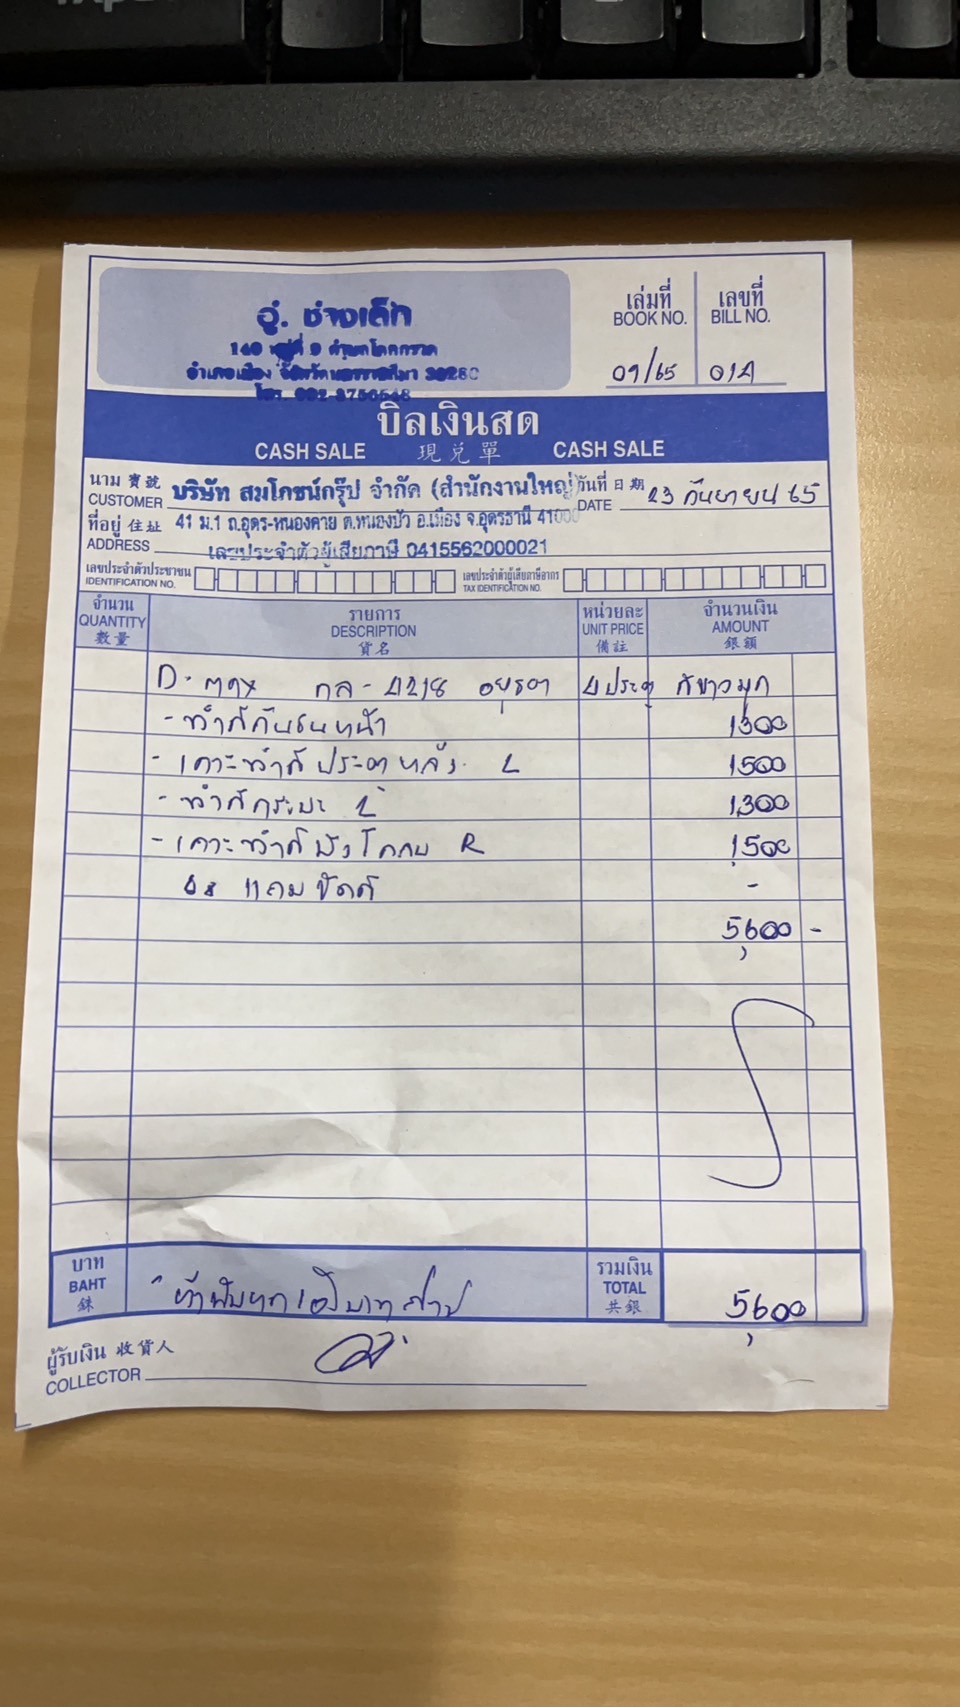 อู่. ช่างเด็ก
140 หมู่ที่ 9 ตำบลโคกกรวด
อำเภอเมือง จังหวัดนครราชสีมา 30280
โทร. 092-8756548
เล่มที่ เลขที่
BOOK NO. BILL NO.
09/65 014
บิลเงินสด
CASH SALE 現兌單 CASH SALE
นาม 寶號 บริษัท สมโภชน์กรุ๊ป จำกัด (สำนักงานใหญ่) วันที่ 日期
CUSTOMER DATE 23 กันยายน 65
ที่อยู่ 住址 41 ม.1 ถ.อุดร-หนองคาย ต.หนองบัว อ.เมือง จ.อุดรธานี 41000
ADDRESS เลขประจำตัวผู้เสียภาษี 0415562000021
เลขประจำตัวประชาชน เลขประจำตัวผู้เสียภาษีอากร
IDENTIFICATION NO. TAX IDENTIFICATION NO.
จำนวน รายการ หน่วยละ จำนวนเงิน
QUANTITY DESCRIPTION UNIT PRICE AMOUNT
數量 貨名 備註 銀額
D-max กล-4218 อยุธยา 4 ประตู สีขาวมุก
- ทำสีกันชนหน้า 1300
- เคาะทำสี ประตูหลัง L 1500
- ทำสีกระบะ L 1,300
- เคาะทำสี บังโคลน R 1,500
แถม ขัดสี -
5,600 -
บาท รวมเงิน
BAHT ห้าพันหกร้อยบาทถ้วน TOTAL 5,600
銖 共銀
ผู้รับเงิน 收貨人
COLLECTOR